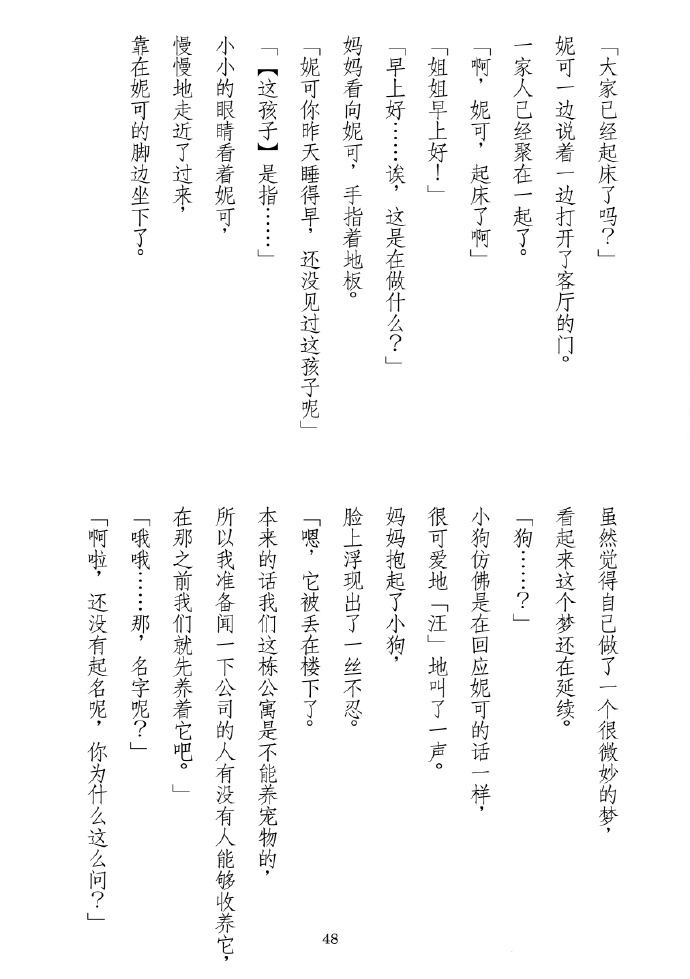 「大家已经起床了吗？」
妮可一边说着一边打开了客厅的门。
一家人已经聚在一起了。
「啊，妮可，起床了啊」
「姐姐早上好！」
「早上好……诶，这是在做什么？」
妈妈看向妮可，手指着地板。
「妮可你昨天睡得早，还没见过这孩子呢」
「【这孩子】是指……」
小小的眼睛看着妮可，
慢慢地走近了过来，
靠在妮可的脚边坐下了。
虽然觉得自己做了一个很微妙的梦，
看起来这个梦还在延续。
「狗……？」
小狗仿佛是在回应妮可的话一样，
很可爱地「汪」地叫了一声。
妈妈抱起了小狗，
脸上浮现出了一丝不忍。
「嗯，它被丢在楼下了。
本来的话我们这栋公寓是不能养宠物的，
所以我准备闻一下公司的人有没有人能够收养它，
在那之前我们就先养着它吧。」
「哦哦……那，名字呢？」
「啊啦，还没有起名呢，你为什么这么问？」
48